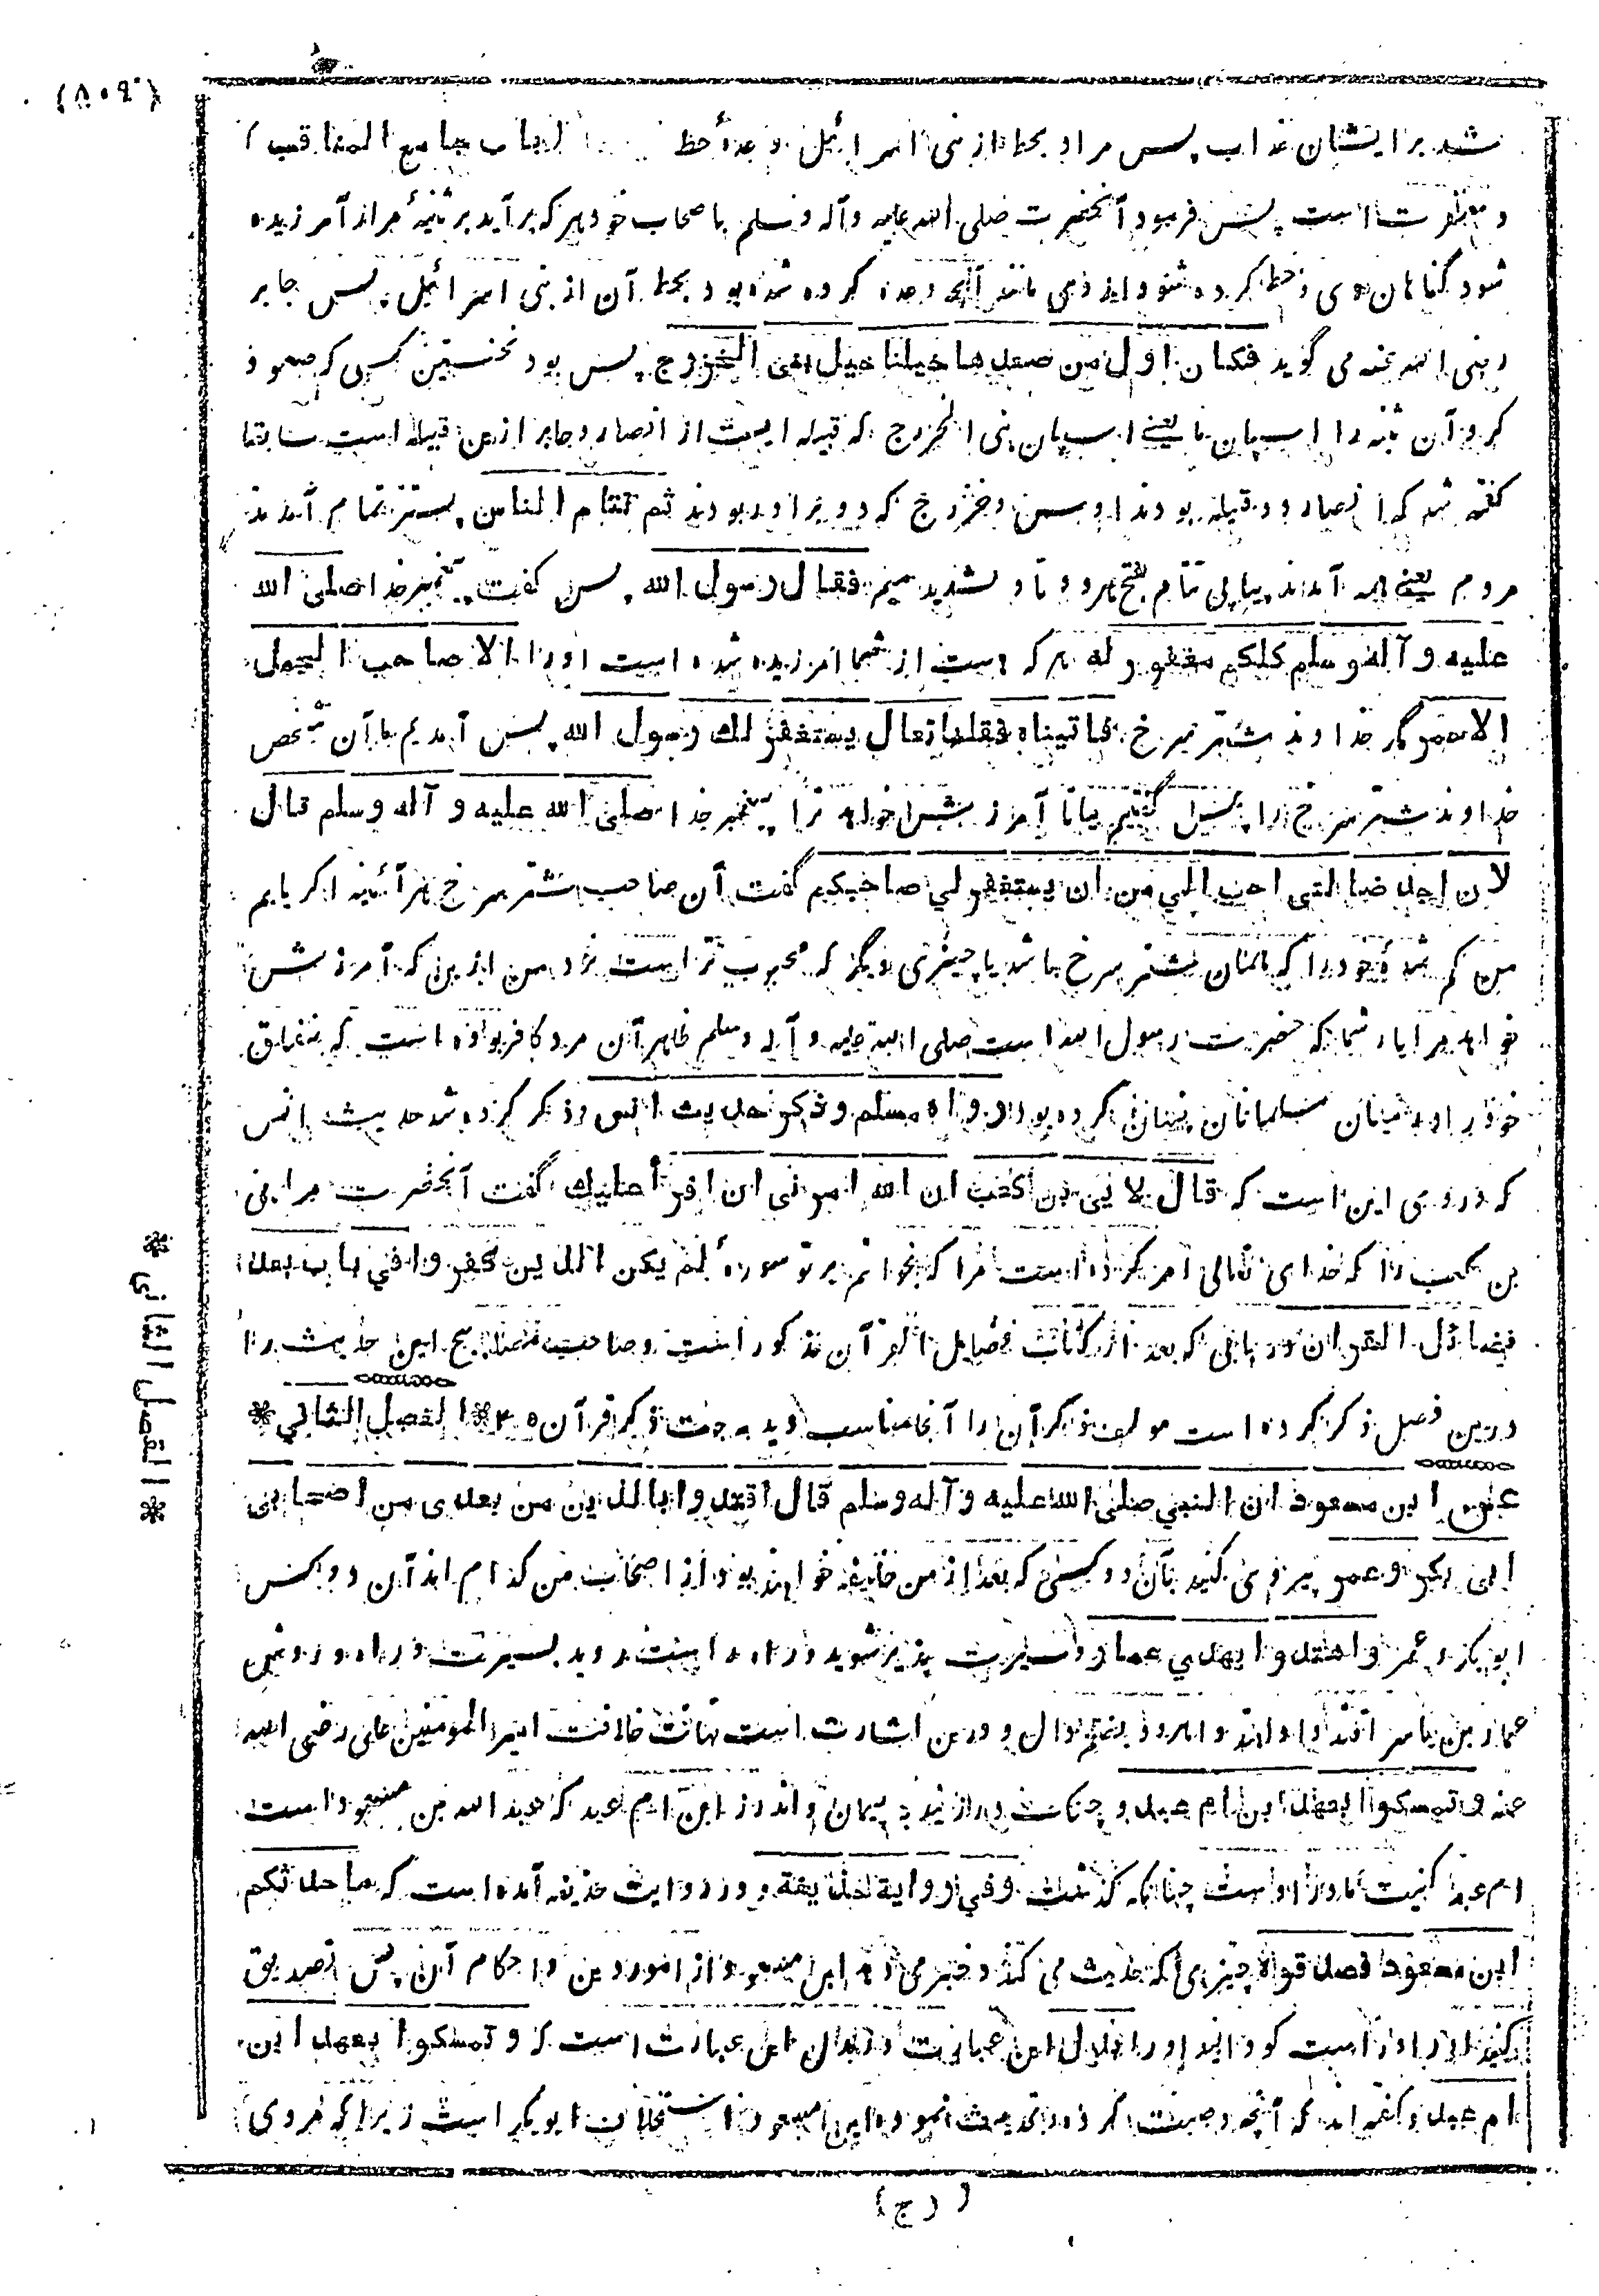 (٨٠٩)
شد بر ایشان عذاب پس مراد بحط از بنی اسرائیل وعدهٔ حط باب جامع المناقب
و مغفرت است پس فرمود آنحضرت صلی الله علیه وآله وسلم باصحاب خود هر که برآید بر ثنیهٔ مرار آمرزیده
شود گناهان وی و حط کرده شود از وی مانند آنچه وعده کرده شده بود بحط آن از بنی اسرائیل پس جابر
رضی الله عنه می گوید فكان اول من صعدها خيلنا خيل بنى الخزرج پس بود نخستین کسی که صعود
کرد آن ثنیه را اسپان ما یعنے اسپان بنی الخزرج که قبیله ایست از انصار و جابر ازین قبیله است سابقا
گفته شد که انصار دو قبیله بودند اوس و خزرج که دو برادر بودند ثم تتام الناس پستر تمام آمدند
مردم یعنے همه آمدند پیاپی تتام بفتح هر دو تا و تشدید میم فقال رسول الله پس گفت پیغمبر خدا صلى الله
عليه و آله وسلم كلكم مغفور له هر که هست از شما آمرزیده شده است او را الا صاحب الجمل
الاحمر مگر خداوند شتر سرخ فاتيناه فقلنا تعال يستغفر لك رسول الله پس آمدیم ما آن شخص
خداوند شتر سرخ را پس گفتیم بیا تا آمرزش خواهد ترا پیغمبر خدا صلى الله عليه و آله وسلم قال
لان اجد ضالتى احب الي من ان يستغفر لي صاحبكم گفت آن صاحب شتر سرخ هر آئینه اگر یابم
من گم شدهٔ خود را که همان شتر سرخ باشد یا چیزی دیگر که محبوب تر است نزد من ازین که آمرزش
خواهد مرا یار شما که حضرت رسول الله است صلی الله علیه و آله وسلم ظاهر آن مرد کافر بوده است که بنفاق
خود را در میان مسلمانان پنهان کرده بود رواه مسلم و ذكر حديث انس و ذکر کرده شد حدیث انس
که در وی این است که قال لابي بن كعب ان الله امرني ان اقرأ عليك گفت آنحضرت مر ابی
بن کعب را که خدای تعالی امر کرده است مرا که بخوانم بر تو سورهٔ لم يكن الذين كفروا في باب بعد
فضائل القرآن در بابی که بعد از کتاب فضایل القرآن مذکور است و صاحب مصابیح این حدیث را
درین فصل ذکر کرده است مولف ذکر آن را آنجا مناسب دید به جهت ذکر قرآن * الفصل الثاني *
عن ابن مسعود ان النبي صلى الله عليه و آله وسلم قال اقتدوا بالذين من بعدى من اصحابي
ابى بكر و عمر پیروی کنید بآن دو کسی که بعد از من خلیفه خواهند بود از اصحاب من کدام اند آن دو کس
ابو بکر و عمر و اهتدوا بهدي عمار و سیرت پذیر شوید و راه راست روید بسیرت و راه و روش
عمار بن یاسر و درین اشارت است بحقانیت خلافت امیر المومنین علی رضی الله
عنه و تمسكوا بعهد ابن ام عبد و چنگ در زنید به پیمان و اندرز ابن ام عبد که عبد الله بن مسعود است
ام عبد کنیت مادر اوست چنانکه گذشت و في رواية حذيفة و در روایت حذیفه آمده است که ما حدثكم
ابن مسعود فصدقوه چیزی که حدیث می کند و خبر می دهد ابن مسعود از امور دین و احکام آن پس تصدیق
کنید او را و راست گو دانید او را بدل این عبارت است که و تمسكوا بعهد ابن
ام عبد و گفته اند که آنچه وصیت کرده و تحدیث نموده ابن مسعود استخلاف ابو بکر است زیرا که مروی
* الفصل الثاني *
(رج)